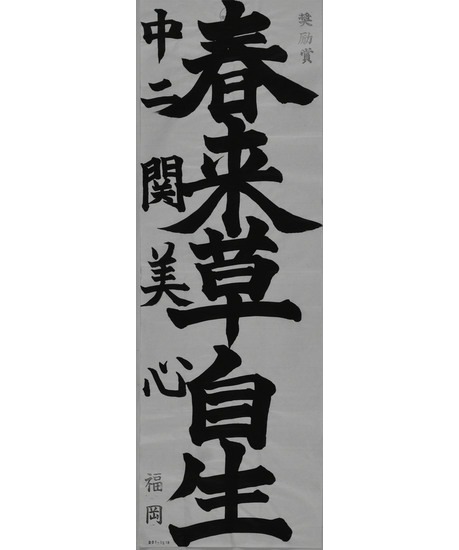 奨励賞
春来草自生
中二 関美心
福岡